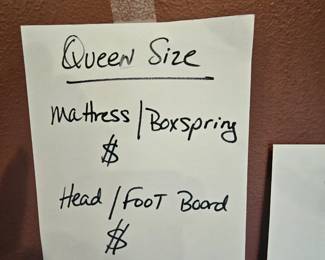 Queen Size
Mattress / Boxspring
$
Head / Foot Board
$